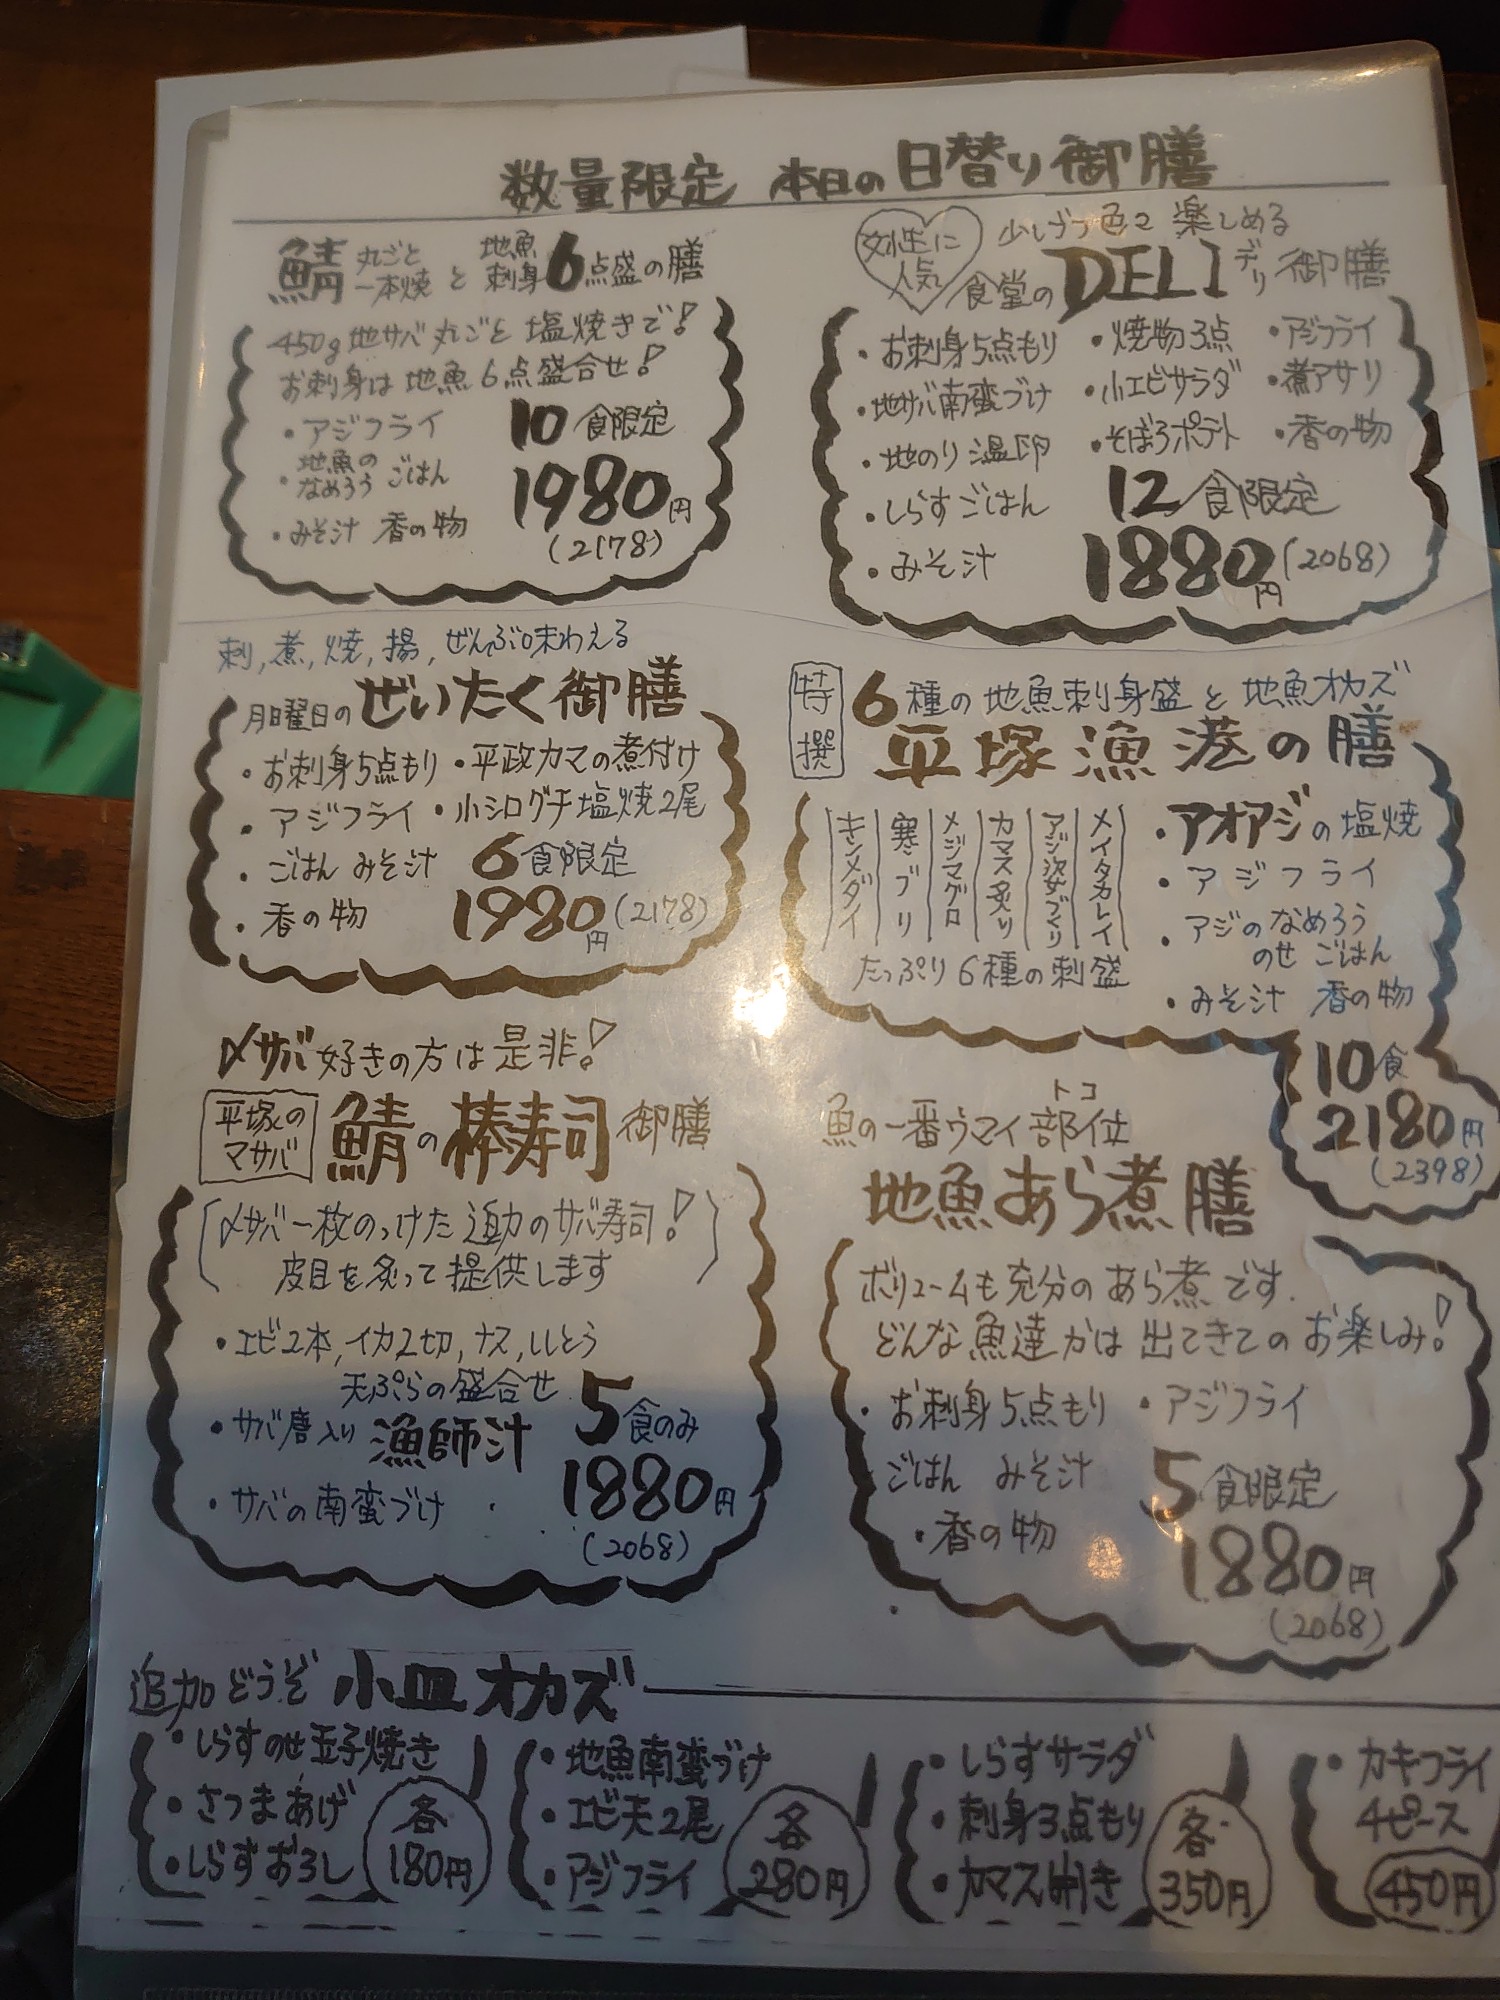 数量限定 本日の日替り御膳
鯖 丸ごと一本焼と地魚刺身6点盛の膳
450g地サバ丸ごと塩焼きで!
お刺身は地魚6点盛合せ!
・アジフライ
・地魚のなめろう ごはん
・みそ汁 香の物
10食限定
1980円
(2178)
女性に人気
少しづつ色々楽しめる
食堂のDELIデリ御膳
・お刺身5点もり
・地サバ南蛮づけ
・地のり温卵
・しらすごはん
・みそ汁
・焼物3点
・小エビサラダ
・そぼろポテト
・アジフライ
・煮アサリ
・香の物
12食限定
1880円(2068)
刺,煮,焼,揚,ぜんぶ味わえる
月曜日のぜいたく御膳
・お刺身5点もり・平政カマの煮付け
・アジフライ・小シログチ塩焼2尾
・ごはん みそ汁
・香の物
6食限定
1980円(2178)
特撰
6種の地魚刺身盛と地魚オカズ
平塚漁港の膳
キンメダイ
寒ブリ
メジマグロ
カマス炙り
アジ姿づくり
メイタカレイ
たっぷり6種の刺盛
・アオアジの塩焼
・アジフライ
・アジのなめろう
のせごはん
・みそ汁 香の物
10食
2180円
(2398)
〆サバ好きの方は是非!
平塚のマサバ
鯖の棒寿司御膳
(〆サバ一枚のっけた迫力のサバ寿司!
皮目を炙って提供します)
・エビ2本,イカ2切,ナス,ししとう
天ぷらの盛合せ
・サバ唐入り漁師汁
・サバの南蛮づけ
5食のみ
1880円
(2068)
魚の一番ウマイ部位
トコ
地魚あら煮膳
ボリュームも充分のあら煮です.
どんな魚達かは出てきてのお楽しみ!
・お刺身5点もり・アジフライ
ごはん みそ汁
・香の物
5食限定
1880円
(2068)
追加どうぞ 小皿オカズ
・しらすのせ玉子焼き
・さつまあげ
・しらすおろし
各180円
・地魚南蛮づけ
・エビ天2尾
・アジフライ
各280円
・しらすサラダ
・刺身3点もり
・カマス開き
各350円
・カキフライ
4ピース
450円